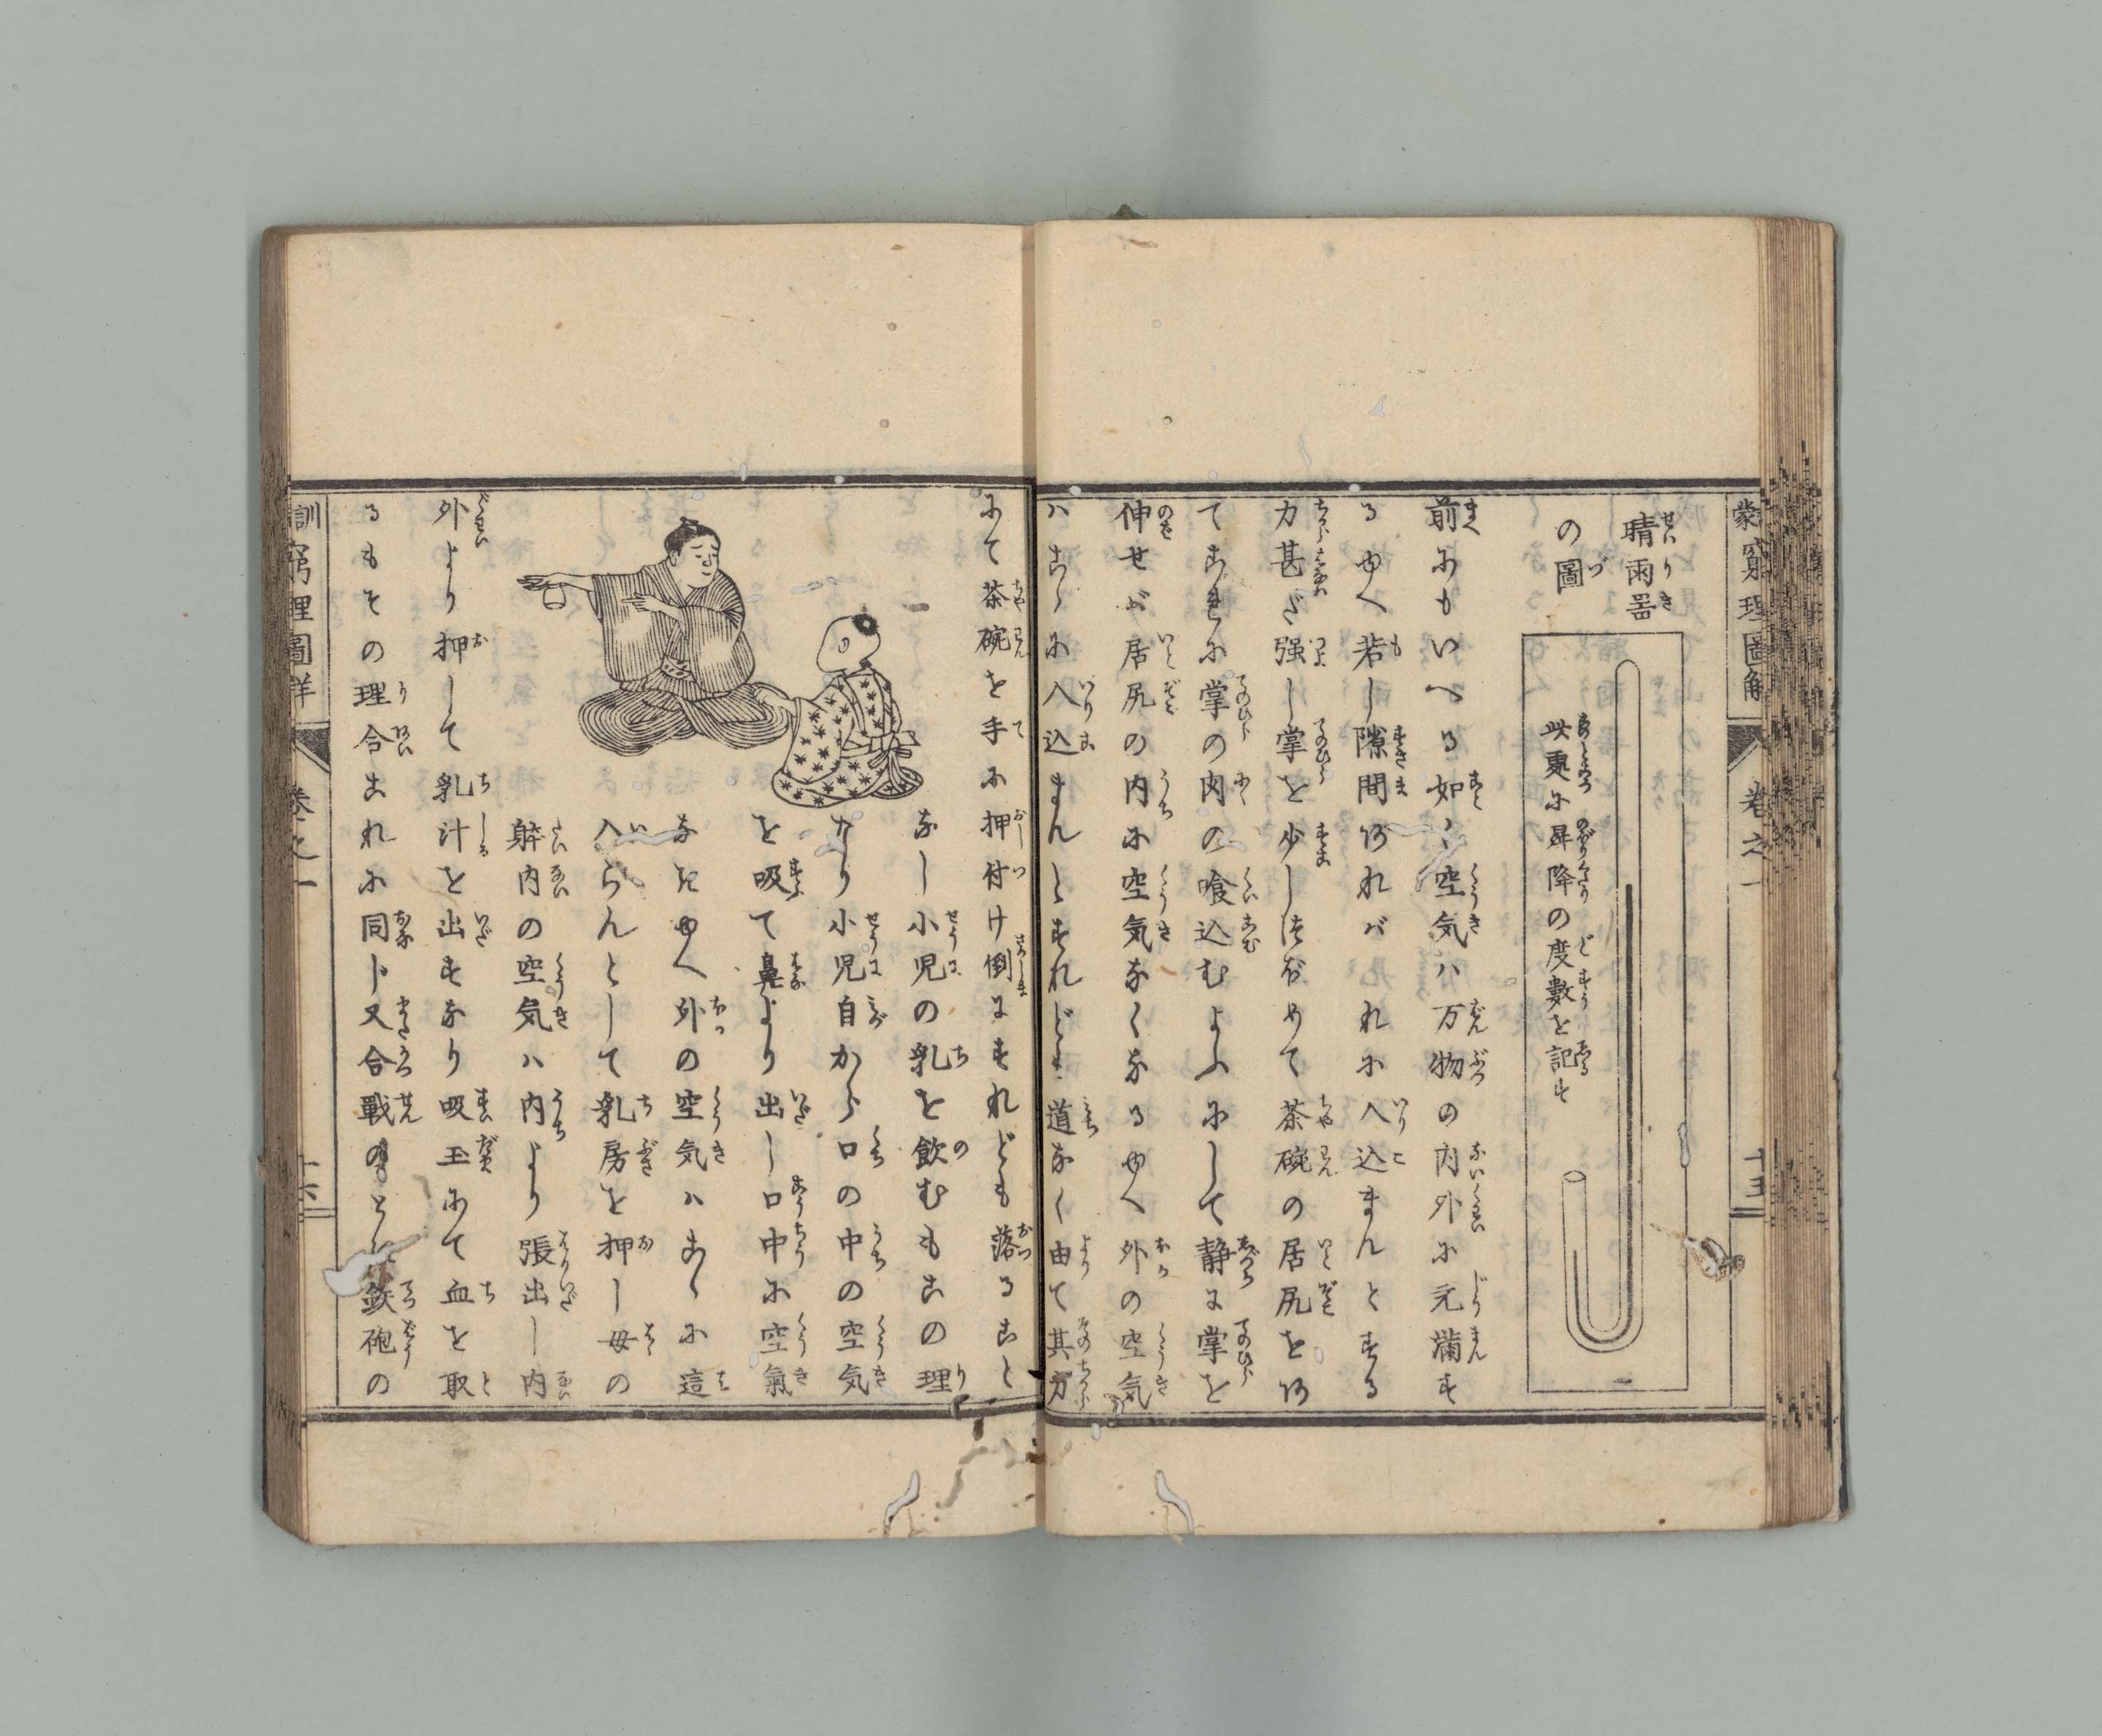 蒙窮理圖解 巻之一 十五
晴雨器
の圖
此処に昇降の度數を記す
前にもいへる如く空気ハ万物の内外に充満す
るゆへ若し隙間あれバこれに入込まんとする
力甚だ强し掌を少しすぼめて茶碗の居尻をあ
てこれに掌の肉の喰込むよふにして静に掌を
伸せバ居尻の内に空気なくなるゆへ外の空気
ハこゝに入込まんとすれども道なく由て其力
にて茶碗を手に押付け倒にすれども落ること
なし小児の乳を飲むもこの理
なり小児自から口の中の空気
を吸て鼻より出し口中に空氣
なきゆへ外の空気ハこゝに這
入らんとして乳房を押し母の
躰内の空気ハ内より張出し内
外より押して乳汁を出すなり吸玉にて血を取
るもその理合これに同じ又合戰のとき鉄砲の
訓窮理圖解 巻之一 十六